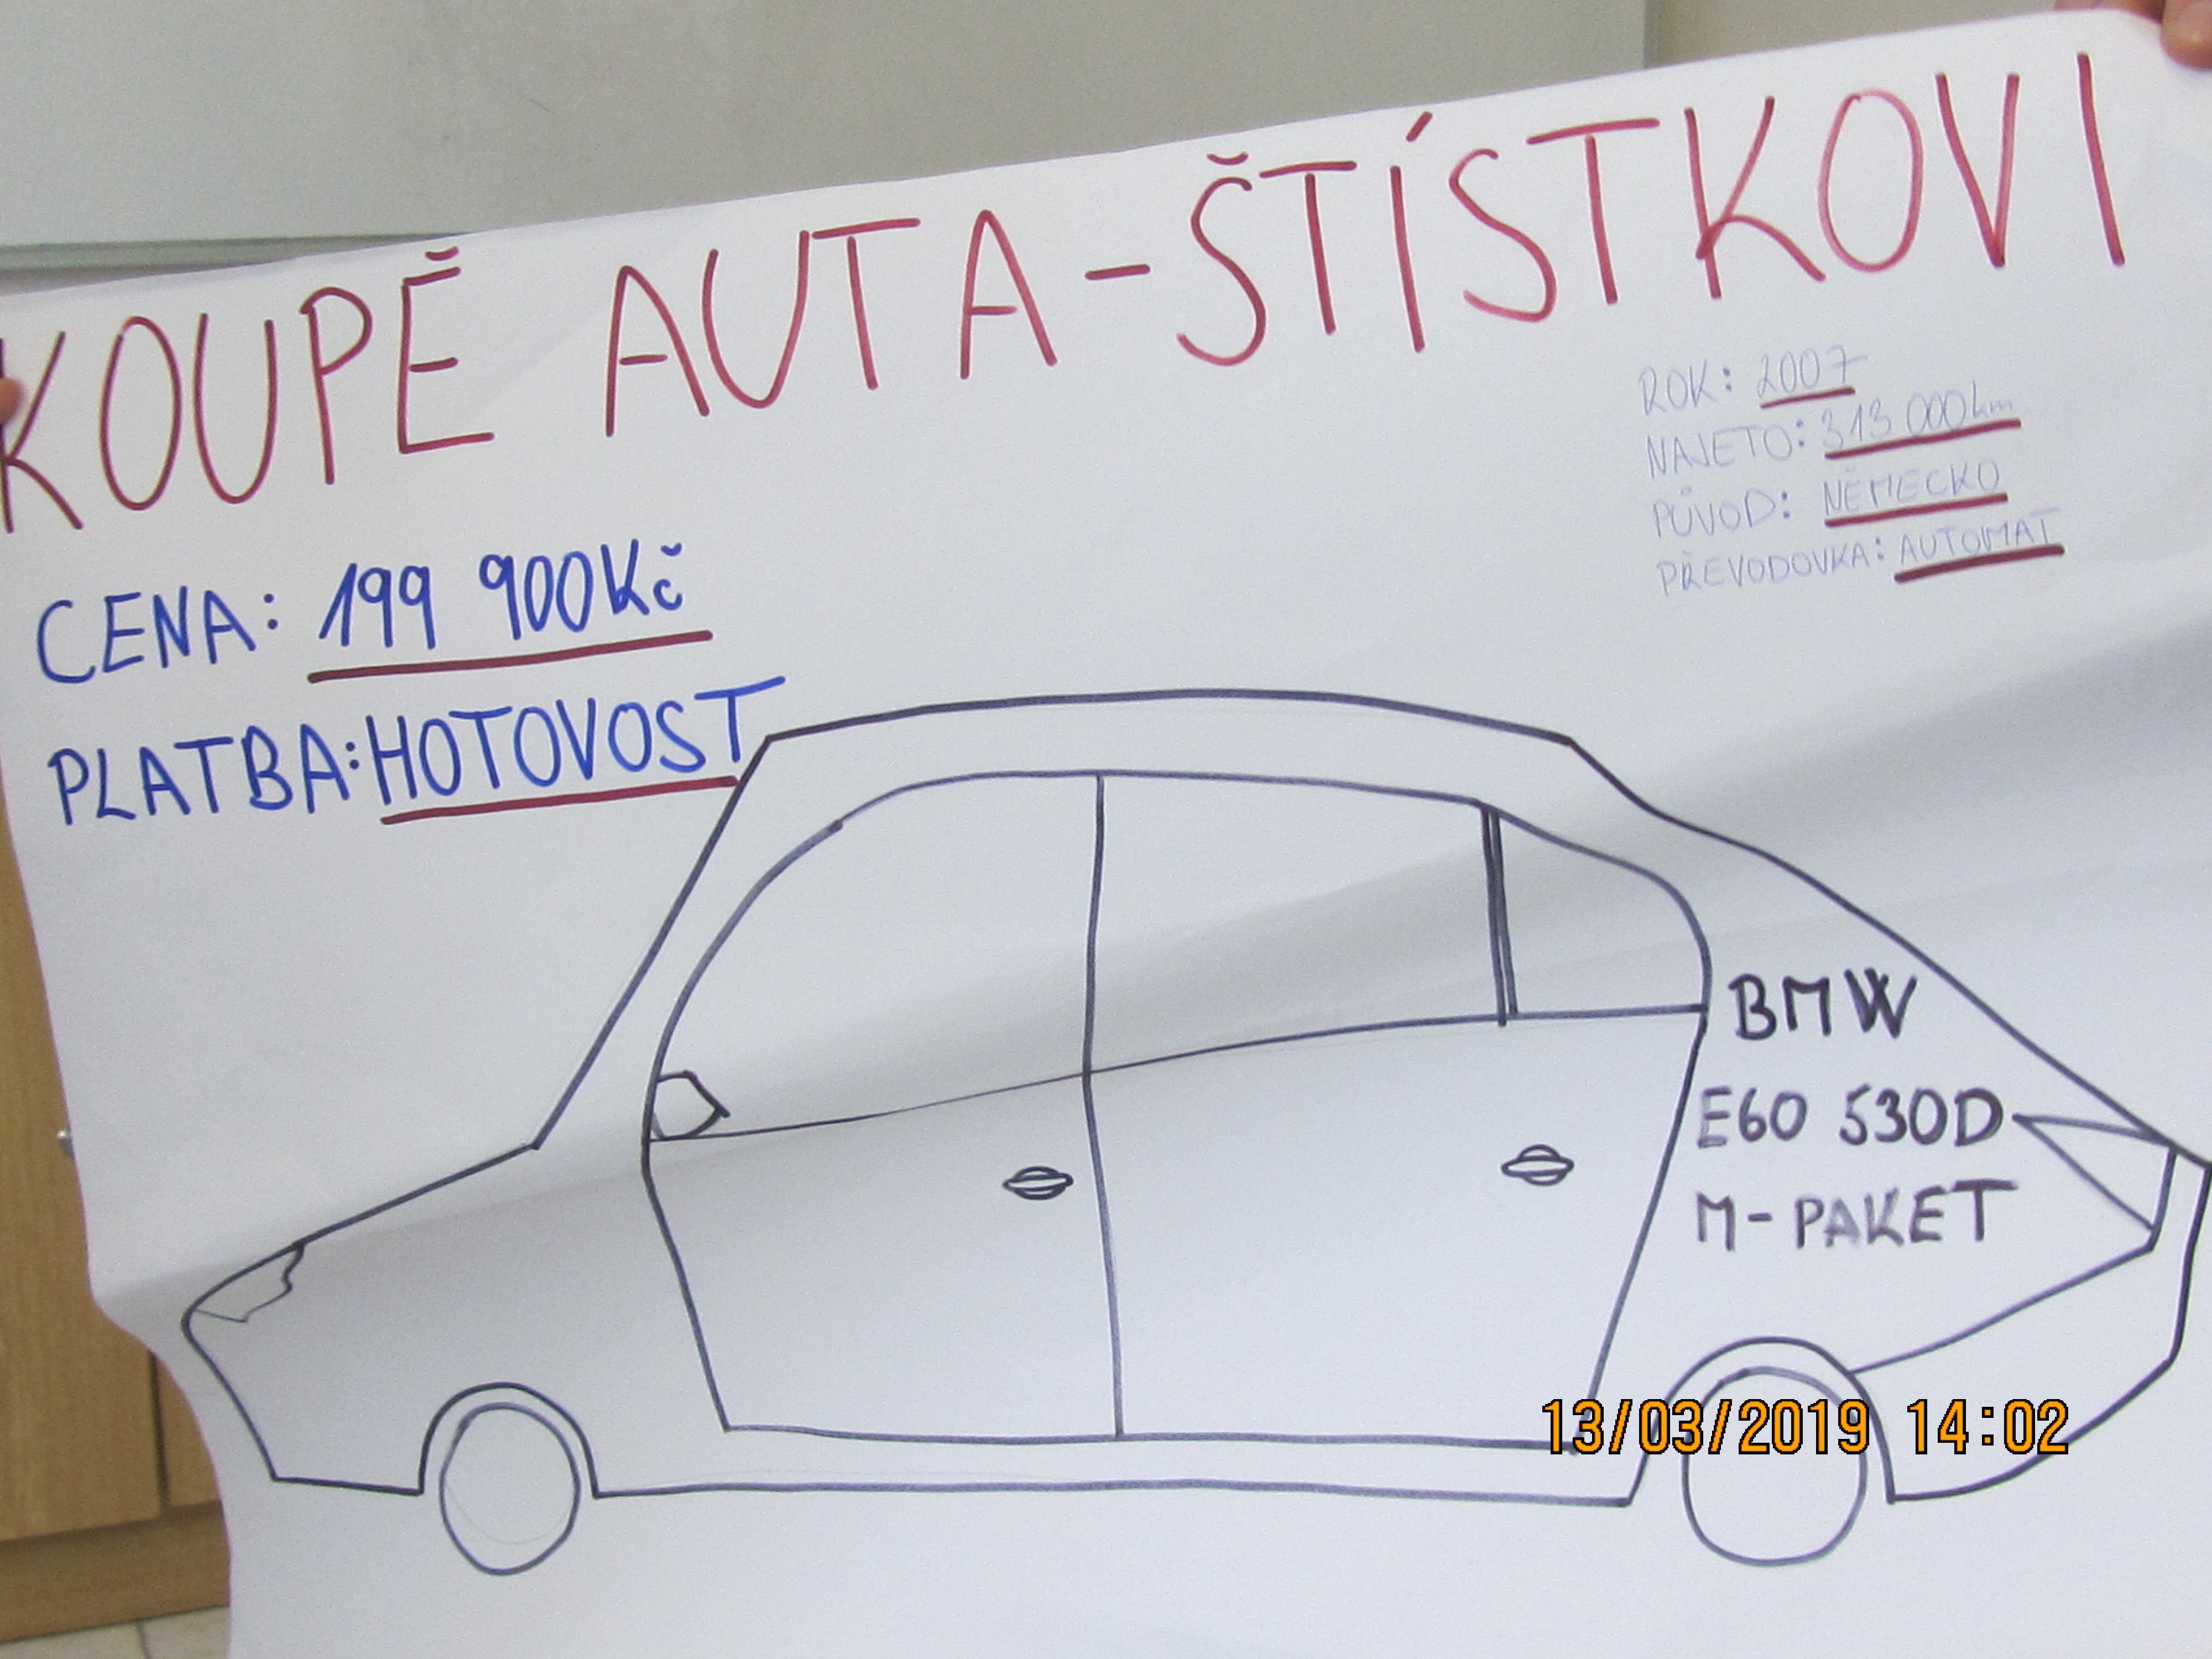 KOUPĚ AUTA-ŠTÍSTKOVI
ROK: 2007
NAJETO: 313 000km
PŮVOD: NĚMECKO
PŘEVODOVKA: AUTOMAT
CENA: 199 900Kč
PLATBA: HOTOVOST
BMW
E60 530D
M-PAKET
13/03/2019 14:02